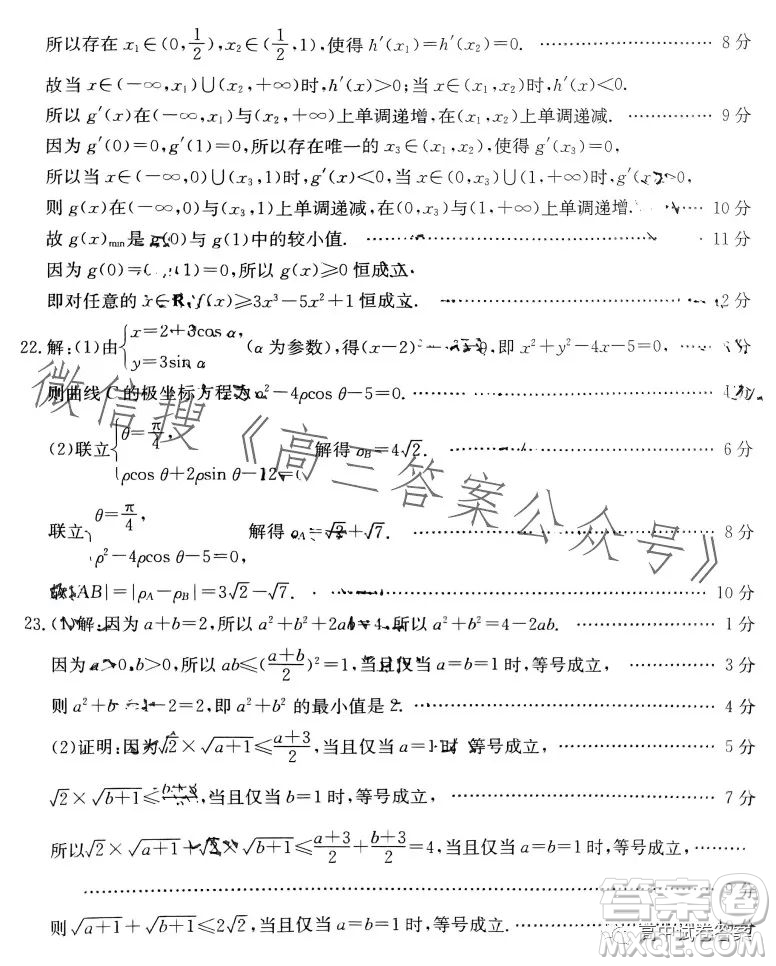 所以存在 x₁∈(0,1/2),x₂∈(1/2,1),使得 h′(x₁)=h′(x₂)=0. 8分
故当 x∈(-∞,x₁)∪(x₂,+∞)时,h′(x)>0;当 x∈(x₁,x₂)时,h′(x)<0.
所以 g′(x)在(-∞,x₁)与(x₂,+∞)上单调递增,在(x₁,x₂)上单调递减. 9分
因为 g′(0)=0,g′(1)=0,所以存在唯一的 x₃∈(x₁,x₂),使得 g′(x₃)=0,
所以当 x∈(-∞,0)∪(x₃,1)时,g′(x)<0,当 x∈(0,x₃)∪(1,+∞)时,g′(x)
则 g(x)在(-∞,0)与(x₃,1)上单调递减,在(0,x₃)与(1,+∞)上单调递增. 10分
故 g(x)min是 g(0)与 g(1)中的较小值. 11分
因为 g(0)= (1)=0,所以 g(x)≥0 恒成立.
即对任意的 x∈R, (x)≥3x³-5x²+1 恒成立. 2分
22.解:(1)由{x=2+3cos α, y=3sin α (α 为参数),得(x-2)² 即 x²+y²-4x-5=0, 分
则曲线 C 的极坐标方程为ρ²-4ρcos θ-5=0. 4
(2)联立{θ=π/4, ρcos θ+2ρsin θ-12=0 解得 ρB=4√2. 6分
联立{θ=π/4, ρ²-4ρcos θ-5=0, 解得 ρA=√2+√7. 8分
故|AB|=|ρA-ρB|=3√2-√7. 10分
23.(1)解:因为 a+b=2,所以 a²+b²+2ab=4,所以 a²+b²=4-2ab. 1分
因为 a>0,b>0,所以 ab≤((a+b)/2)²=1,当且仅当 a=b=1 时,等号成立, 3分
则 a²+b -2=2,即 a²+b² 的最小值是 2. 4分
(2)证明:因为√2×√(a+1)≤(a+3)/2,当且仅当 a=1 时,等号成立, 5分
√2×√(b+1)≤(b+3)/ ,当且仅当 b=1 时,等号成立, 7分
所以√2×√(a+1)+√2×√(b+1)≤(a+3)/2+(b+3)/2=4,当且仅当 a=b=1 时,等号成立,
9分
则√(a+1)+√(b+1)≤2√2,当且仅当 a=b=1 时,等号成立. 分
微信搜《高三答案公众号》
答案圈
高中试卷答案